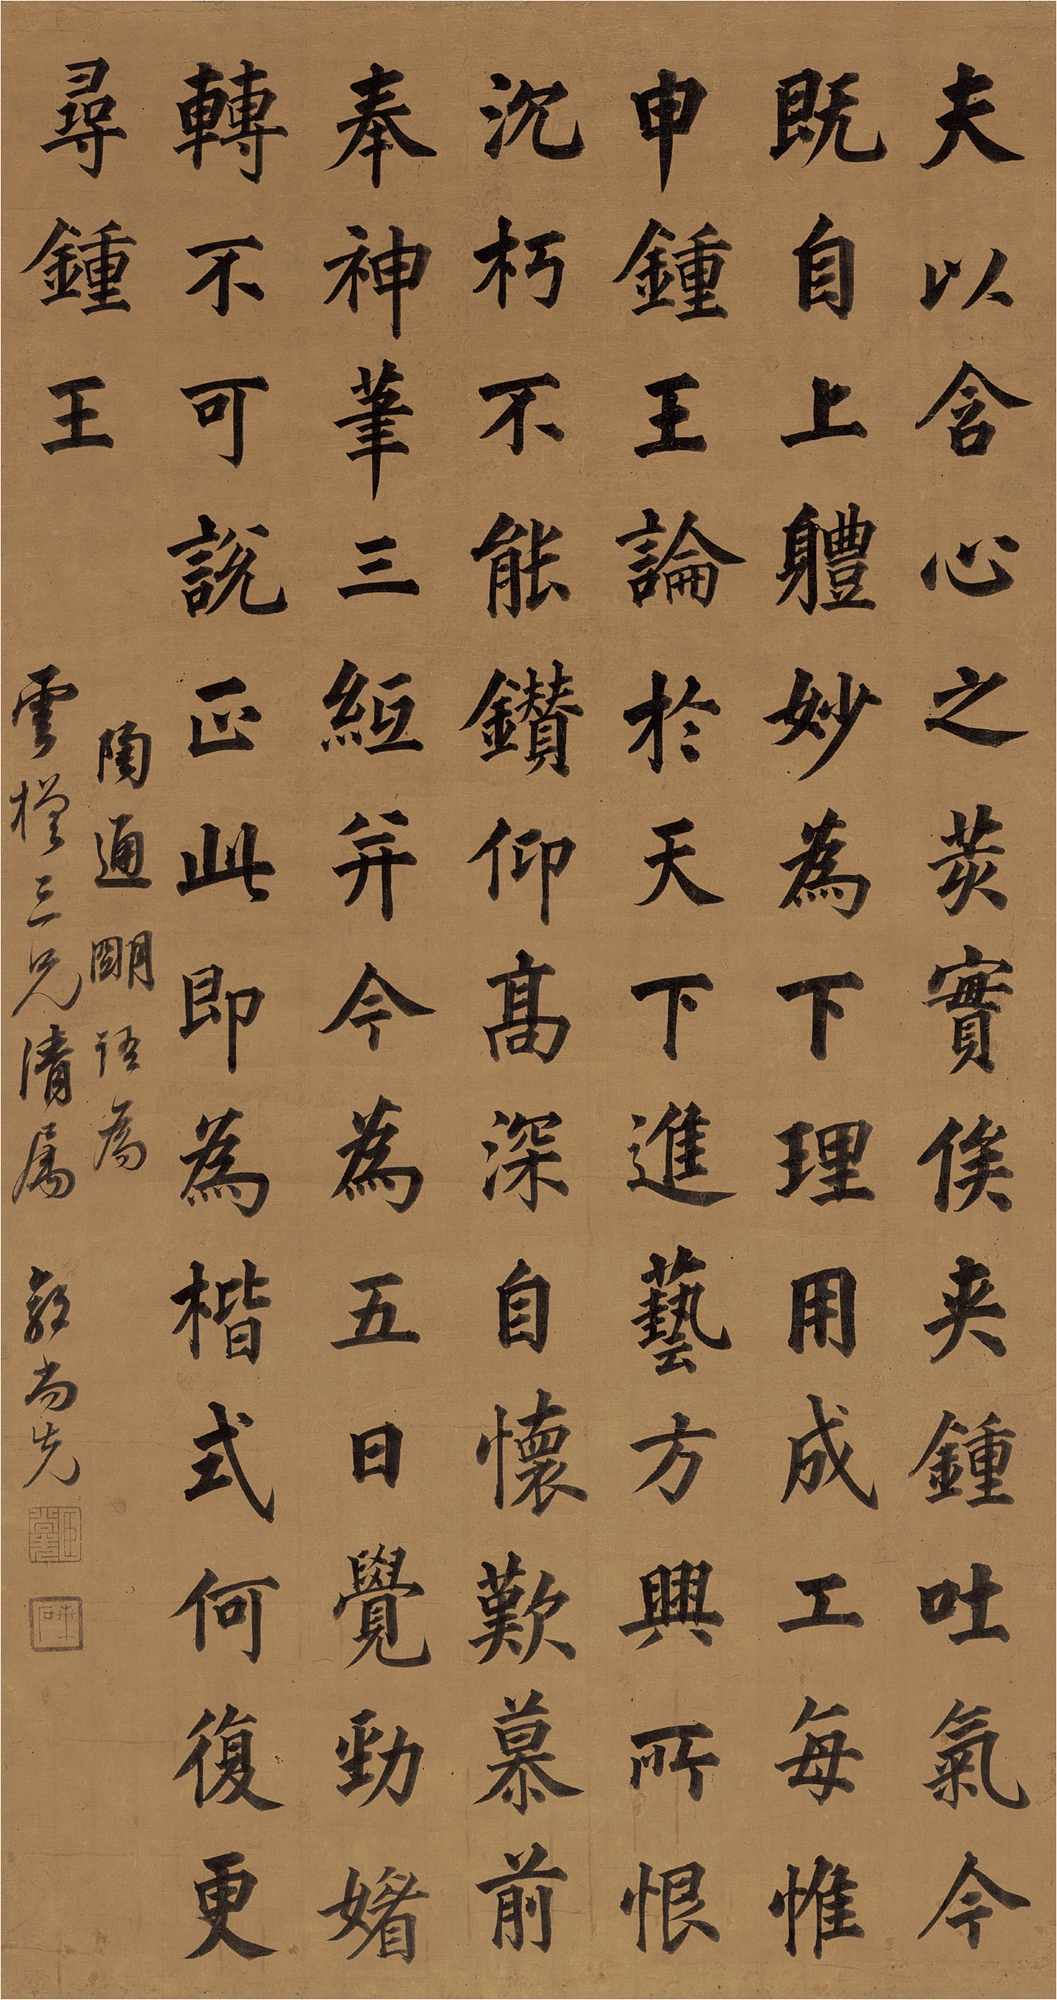 夫以含心之荄實俟夾鍾吐氣今
既自上軆妙為下理用成工每惟
申鍾王論於天下進藝方興所恨
沉朽不能鑽仰髙深自懷歎慕前
奉神筆三紙并今為五日覺勁媚
轉不可説正此即為楷式何復更
尋鍾王
陶通朙語為
雲樵三兄清屬 郭尚先